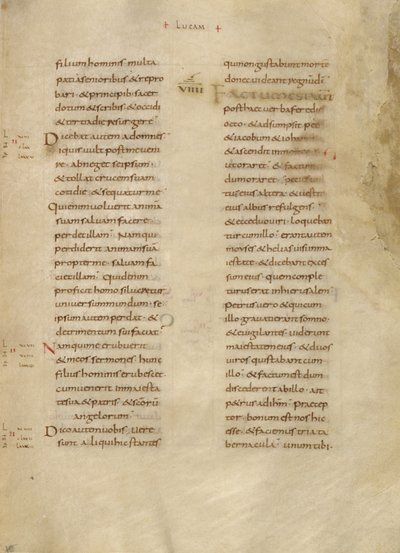 + LUCAM +
filium hominis multa
pati a senioribus & repro
bari & principib; sacer
dotum & scribis & occidi
& tertia die resurgere
Dicebat autem ad omnes
si quis vult post me veni
re abneget se ipsum
& tollat crucem suam
cotidie & sequatur me
Qui enim voluerit anima
suam salvam facere
perdet illam Nam qui
perdiderit animam sua
propter me salvam fa
ciet illam Quid enim
proficit homo si lucretur
universum mundum se
ipsum autem perdat &
detrimentum sui faciat
Nam qui me erubuerit
& meos sermones hunc
filius hominis erubescet
cum venerit in maiesta
te sua & patris & scorū
angelorum
Dico autem vobis vere
sunt aliqui hic stantes
qui non gustabunt morte
donec videant regnū dī
VIIII
FACTUM EST AUT
post haec verba fere dies
octo & adsumpsit pe
& iacobum & ioha
& ascendit in monte
ut oraret & factum
dum oraret
tus eius altera & vesti
eius albus refulgens
& ecce duo viri loqueban
tur cum illo erant autem
moyses & helias visi in ma
iestate & dicebant exces
sum eius quem comple
turus erat in hierusalem
Petrus vero & qui cum
illo gravati erant somno
& evigilantes viderunt
maiestatem eius & duos
viros qui stabant cum
illo & factum est dum
discederent ab illo ait
p&rus ad ihm Praecep
tor bonum est nos hic
esse & faciamus tria ta
bernacula unum tibi